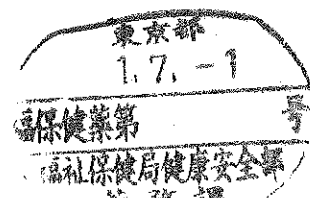 東京都
1.7.-1
福保健薬第 号
福祉保健局健康安全部